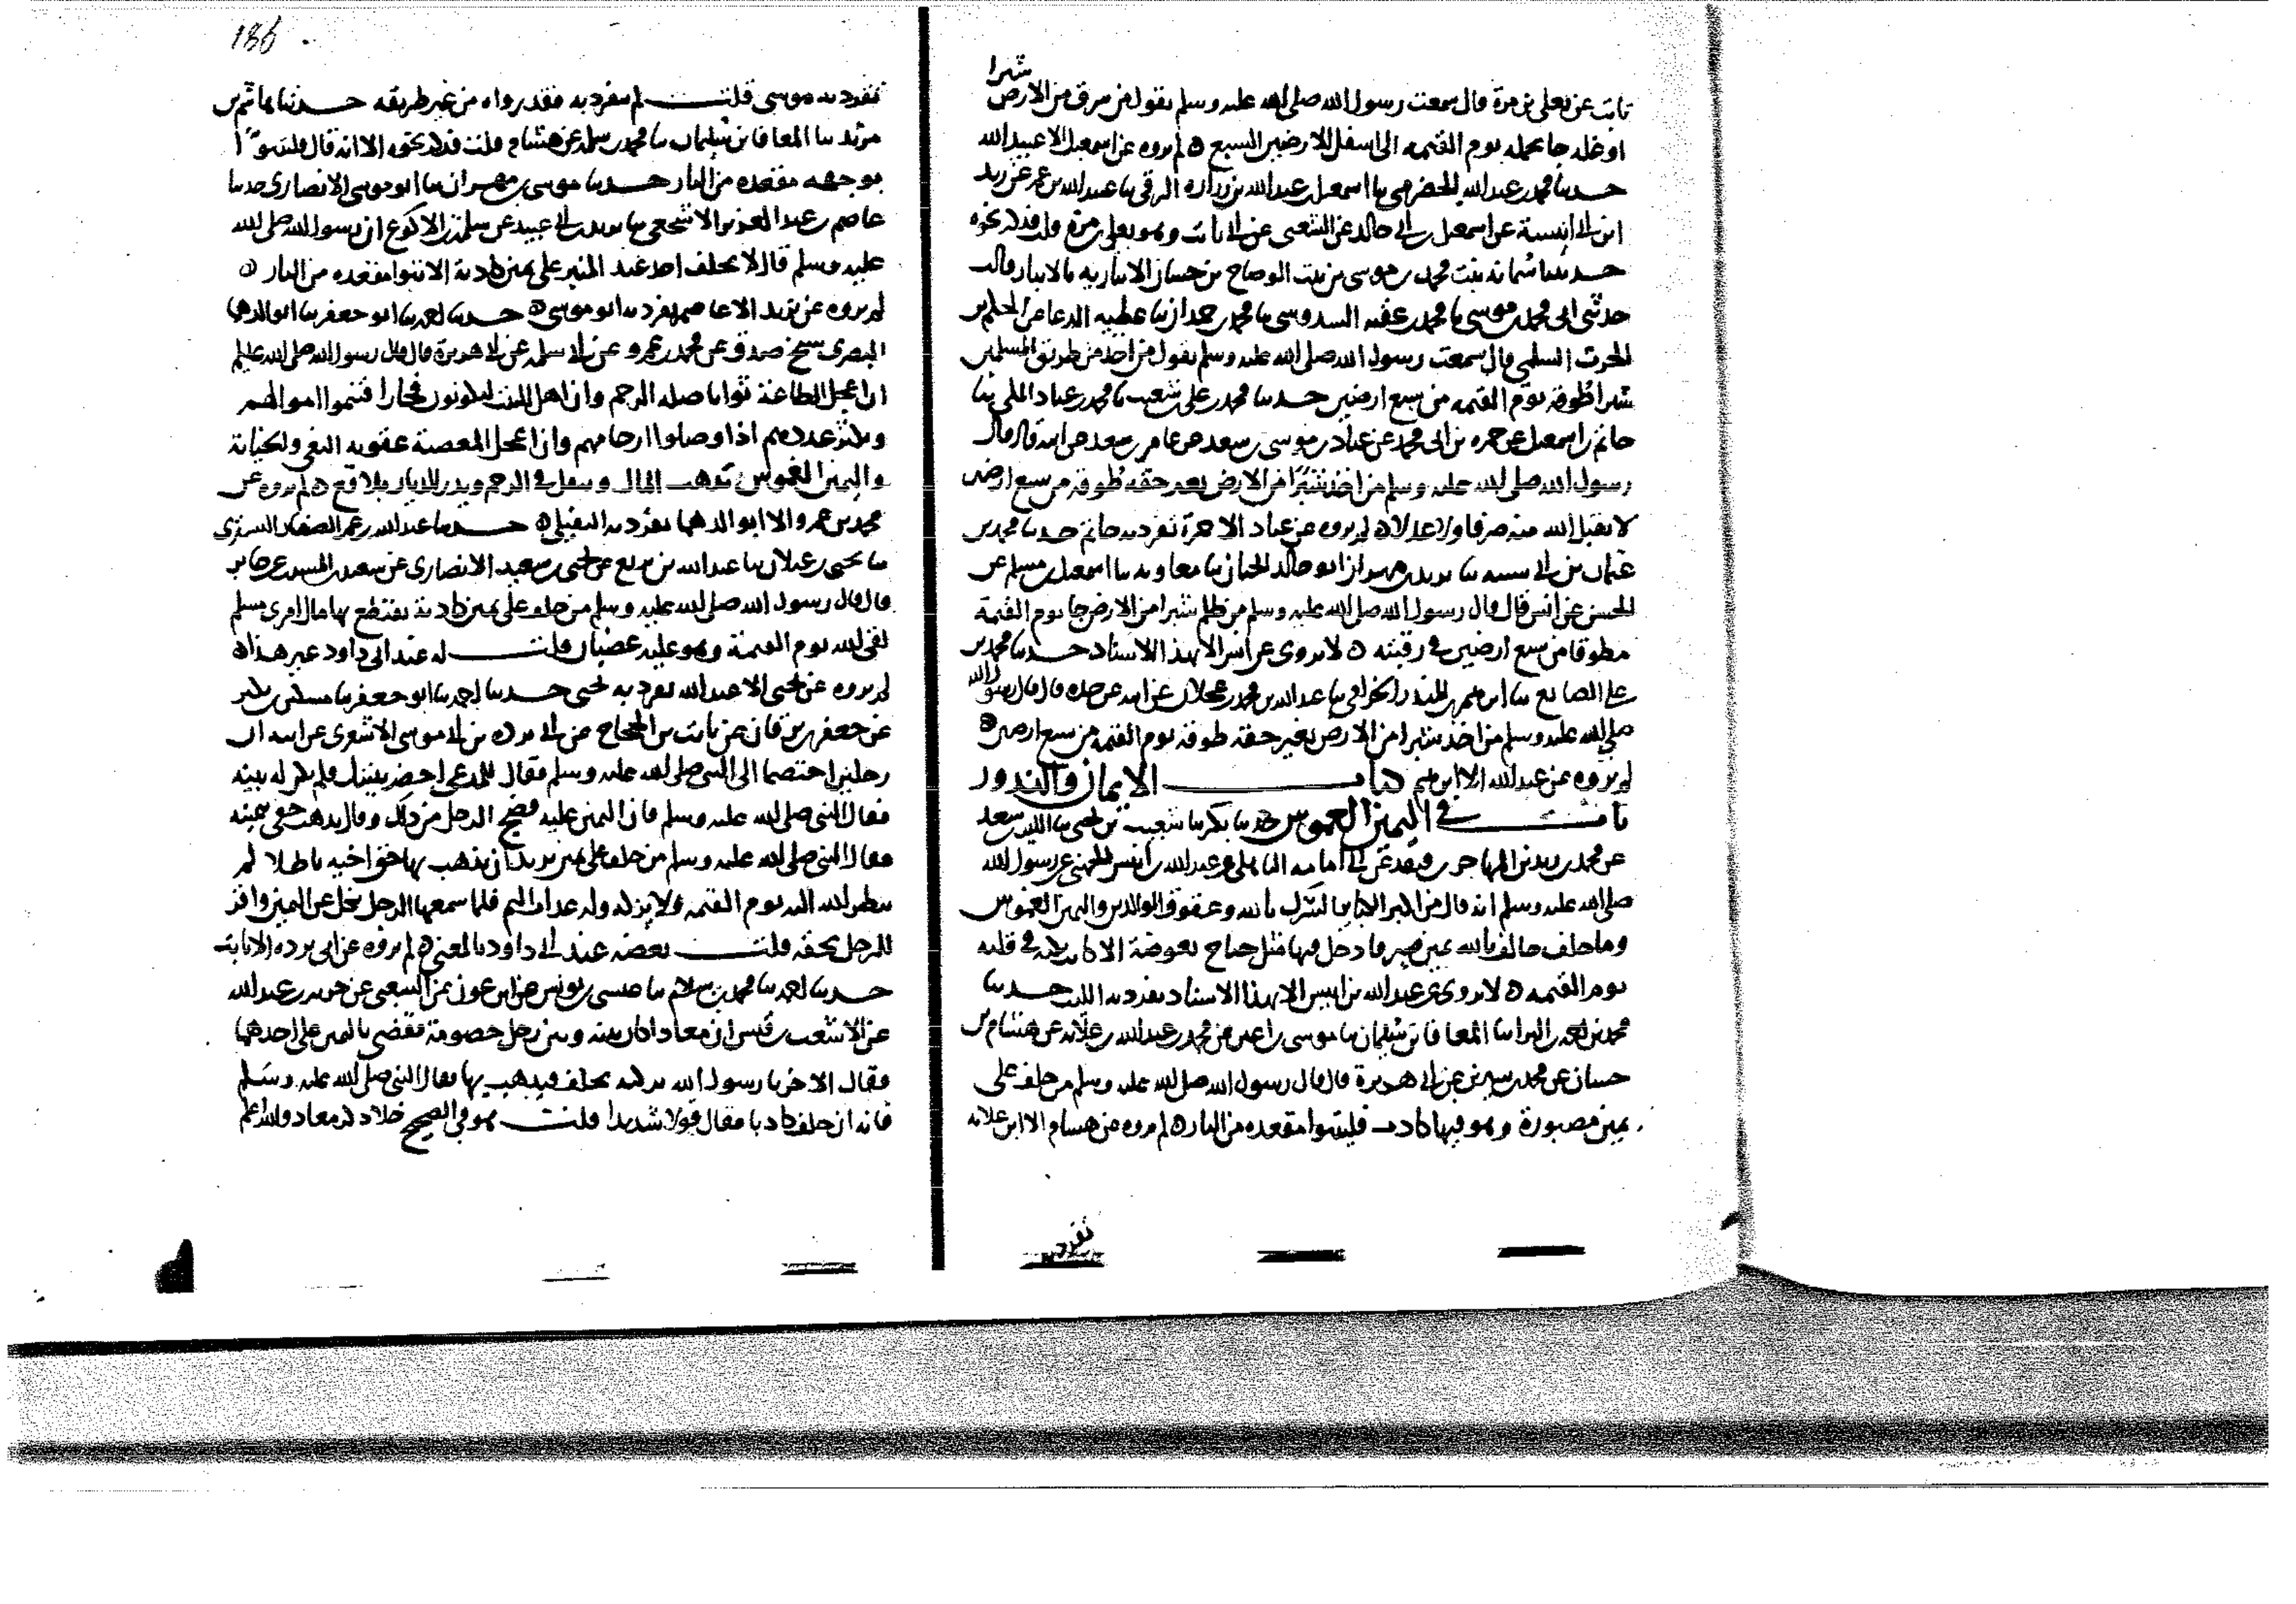 شبرا
ثابت عن يعلى بن مرة قال سمعت رسول الله صلى الله عليه وسلم يقول من سرق من الارض
او غله جا يحمله يوم القيمة الى اسفل الارضين السبع ه لم يروه عن اسمعيل الا عبيد الله
حدثنا محمد بن عبد الله الحضرمي ثنا اسمعيل بن عبد الله بن زرارة الرقي ثنا عبيد الله بن عمرو عن زيد
ابن ابي انيسة عن اسمعيل بن ابي خالد عن الشعبي عن ابي ثابت وهو يعلى بن مرة قلت فذكر نحوه
حدثتنا شمانه بنت محمد بن موسى بن بنت الوضاح بن حسان الانباريه بالانبار قالت
حدثني ابي محمد بن موسى ثنا محمد بن عقبه السدوسي ثنا محمد بن حمران ثنا عطيه الدعا عن الحكم بن
الحرث السلمي قال سمعت رسول الله صلى الله عليه وسلم يقول من اخذ من طريق المسلمين
شبرا طوقه يوم القيمه من سبع ارضين حدثنا محمد بن علي بن شعيب ثنا محمد بن عباد المكي ثنا
حاتم بن اسمعيل عن حمزه بن ابي محمد عن بجاد بن موسى بن سعد عن عامر بن سعد عن ابيه قال قال
رسول الله صلى الله عليه وسلم من اخذ شبرا من الارض بغير حقه طوقه من سبع ارضين
لا يقبل الله منه صرفا ولا عدلا ه لم يروه عن بجاد الا حمزة تفرد به حاتم حدثنا محمد بن
عثمان بن ابي شيبه ثنا يزيد بن مهران ابو خالد الخباز ثنا معاويه ثنا اسمعيل بن مسلم عن
الحسن عن انس قال قال رسول الله صلى الله عليه وسلم من ظلم شبرا من الارض جا يوم القيمة
مطوقا من سبع ارضين في رقبته ه لا يروى عن انس الا بهذا الاسناد حدثنا محمد بن
علي الصايغ ثنا ابرهيم بن المنذر الحزامي ثنا عبد الله بن محمد بن عجلان عن ابيه عن جده قال قال رسول الله
صلى الله عليه وسلم من اخذ شبرا من الارض بغير حقه طوقه يوم القيمه من سبع ارضين ه
لم يروه عن عبد الله الا ابرهيم كتاب الايمان والنذور
باب في اليمين الغموس حدثنا بكر ثنا شعيب بن يحيى ثنا الليث بن سعد
عن محمد بن زيد بن المهاجر بن قنفد عن ابي امامه عن عبد الله بن انيس الجهني عن رسول الله
صلى الله عليه وسلم انه قال من اكبر الكباير الشرك بالله وعقوق الوالدين واليمين الغموس
وما حلف حالف بالله يمين صبر فادخل فيها مثل جناح بعوضة الا كانت نكتة في قلبه
يوم القيمه ه لا يروى عن عبد الله بن انيس الا بهذا الاسناد تفرد به الليث حدثنا
محمد بن احمد بن البرا ثنا المعافا بن سليمان ثنا موسى بن اعين عن محمد بن عبد الله بن علاثه عن هشام بن
حسان عن محمد بن سيرين عن ابي هريرة قال قال رسول الله صلى الله عليه وسلم من حلف على
يمين مصبورة وهو فيها كاذب فليتبوا مقعده من النار ه لم يروه عن هشام الا ابن علاثه
تفرد به
186
تفرد به موسى قلت لم ينفرد به فقد رواه من غير طريقه حدثنا هاشم بن
مرثد ثنا المعافا بن سليمان ثنا محمد بن سلمة عن هشام قلت فذكر نحوه الا انه قال فليتبوا
بوجهه مقعده من النار حدثنا موسى بن ثنا ابو موسى الانصاري حدثنا
عاصم بن عبد العزيز الاشجعي ثنا يزيد بن ابي عبيد عن سلمة بن الاكوع ان رسول الله صلى الله
عليه وسلم قال لا يحلف احد عند المنبر على يمين كاذبة الا تبوا مقعده من النار ه
لم يروه عن يزيد الا عاصم تفرد به ابو موسى ه حدثنا احمد ثنا ابو جعفر ثنا ابو الدهما
البصري شيخ صدوق عن محمد بن عمرو عن ابي سلمه عن ابي هريرة قال قال رسول الله صلى الله عليه وسلم
ان اعجل الطاعة ثوابا صلة الرحم وان اهل البيت ليكونون فجارا فتنموا اموالهم
ويكثر عددهم اذا وصلوا ارحامهم وان اعجل المعصية عقوبه البغي والخيانة
واليمين الغموس تذهب المال وتعقل في الرحم وتذر الديار بلاقع ه لم يروه عن
محمد بن عمرو الا ابو الدهما تفرد به النفيلي ه حدثنا عبد الله بن عمر الصفار التستري
ثنا يحيى بن غيلان ثنا عبد الله بن بزيع عن يحيى بن سعيد الانصاري عن سعيد بن المسيب عن جابر
قال قال رسول الله صلى الله عليه وسلم من حلف على يمين كاذبة يقتطع بها مال امرى مسلم
لقي الله يوم القيمة وهو عليه غضبان قلت له عند ابي داود غير هذا ه
لم يروه عن يحيى الا عبد الله تفرد به يحيى حدثنا احمد ثنا ابو جعفر ثنا مسكين بن بكير
عن جعفر بن برقان عن ثابت بن الحجاج عن ابي بردة بن ابي موسى الاشعري عن ابيه ان
رجلين اختصما الى النبي صلى الله عليه وسلم فقال للمدعي احضر بينتك فلم يكن له بينه
فقال النبي صلى الله عليه وسلم فان اليمين عليه فضج الرجل من ذلك وقال يذهب حقي بيمينه
فقال النبي صلى الله عليه وسلم من حلف على يمين يريد ان يذهب بها حق اخيه باطلا لم
ينظر الله اليه يوم القيمه ولا يزكه وله عذاب اليم فلما سمعها الرجل نكل عن اليمين واقر
للرجل بحقه قلت بعضه عند ابي داود بالمعنى ه لم يروه عن ابي برده الا ثابت
حدثنا احمد ثنا محمد بن سلام ثنا عيسى بن يونس عن ابن عون عن الشعبي عن جرير بن عبد الله
عن الاشعث بن قيس ان معاذا كان بينه وبين رجل خصومة فقضى باليمين على احدهما
فقال الاخر يا رسول الله تركته يحلف فيذهب بها فقال النبي صلى الله عليه وسلم
فانه ان حلف كاذبا فقال قولا شديدا قلت هو في الصحيح خلا ذكر معاذ والله اعلم